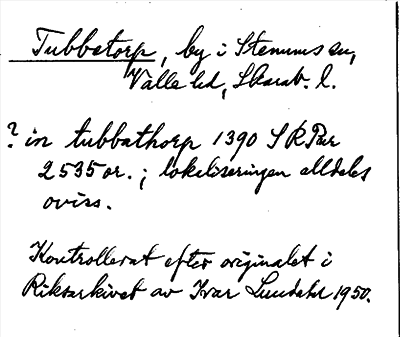 Tubbetorp, by i Stenums sn,
Valle hd, Skarab. l.
? in tubbathorp 1390 SRPer
2535 or.; lokaliseringen alldeles
oviss.
Kontrollerat efter originalet i
Riksarkivet av Ivar Lundahl 1950.